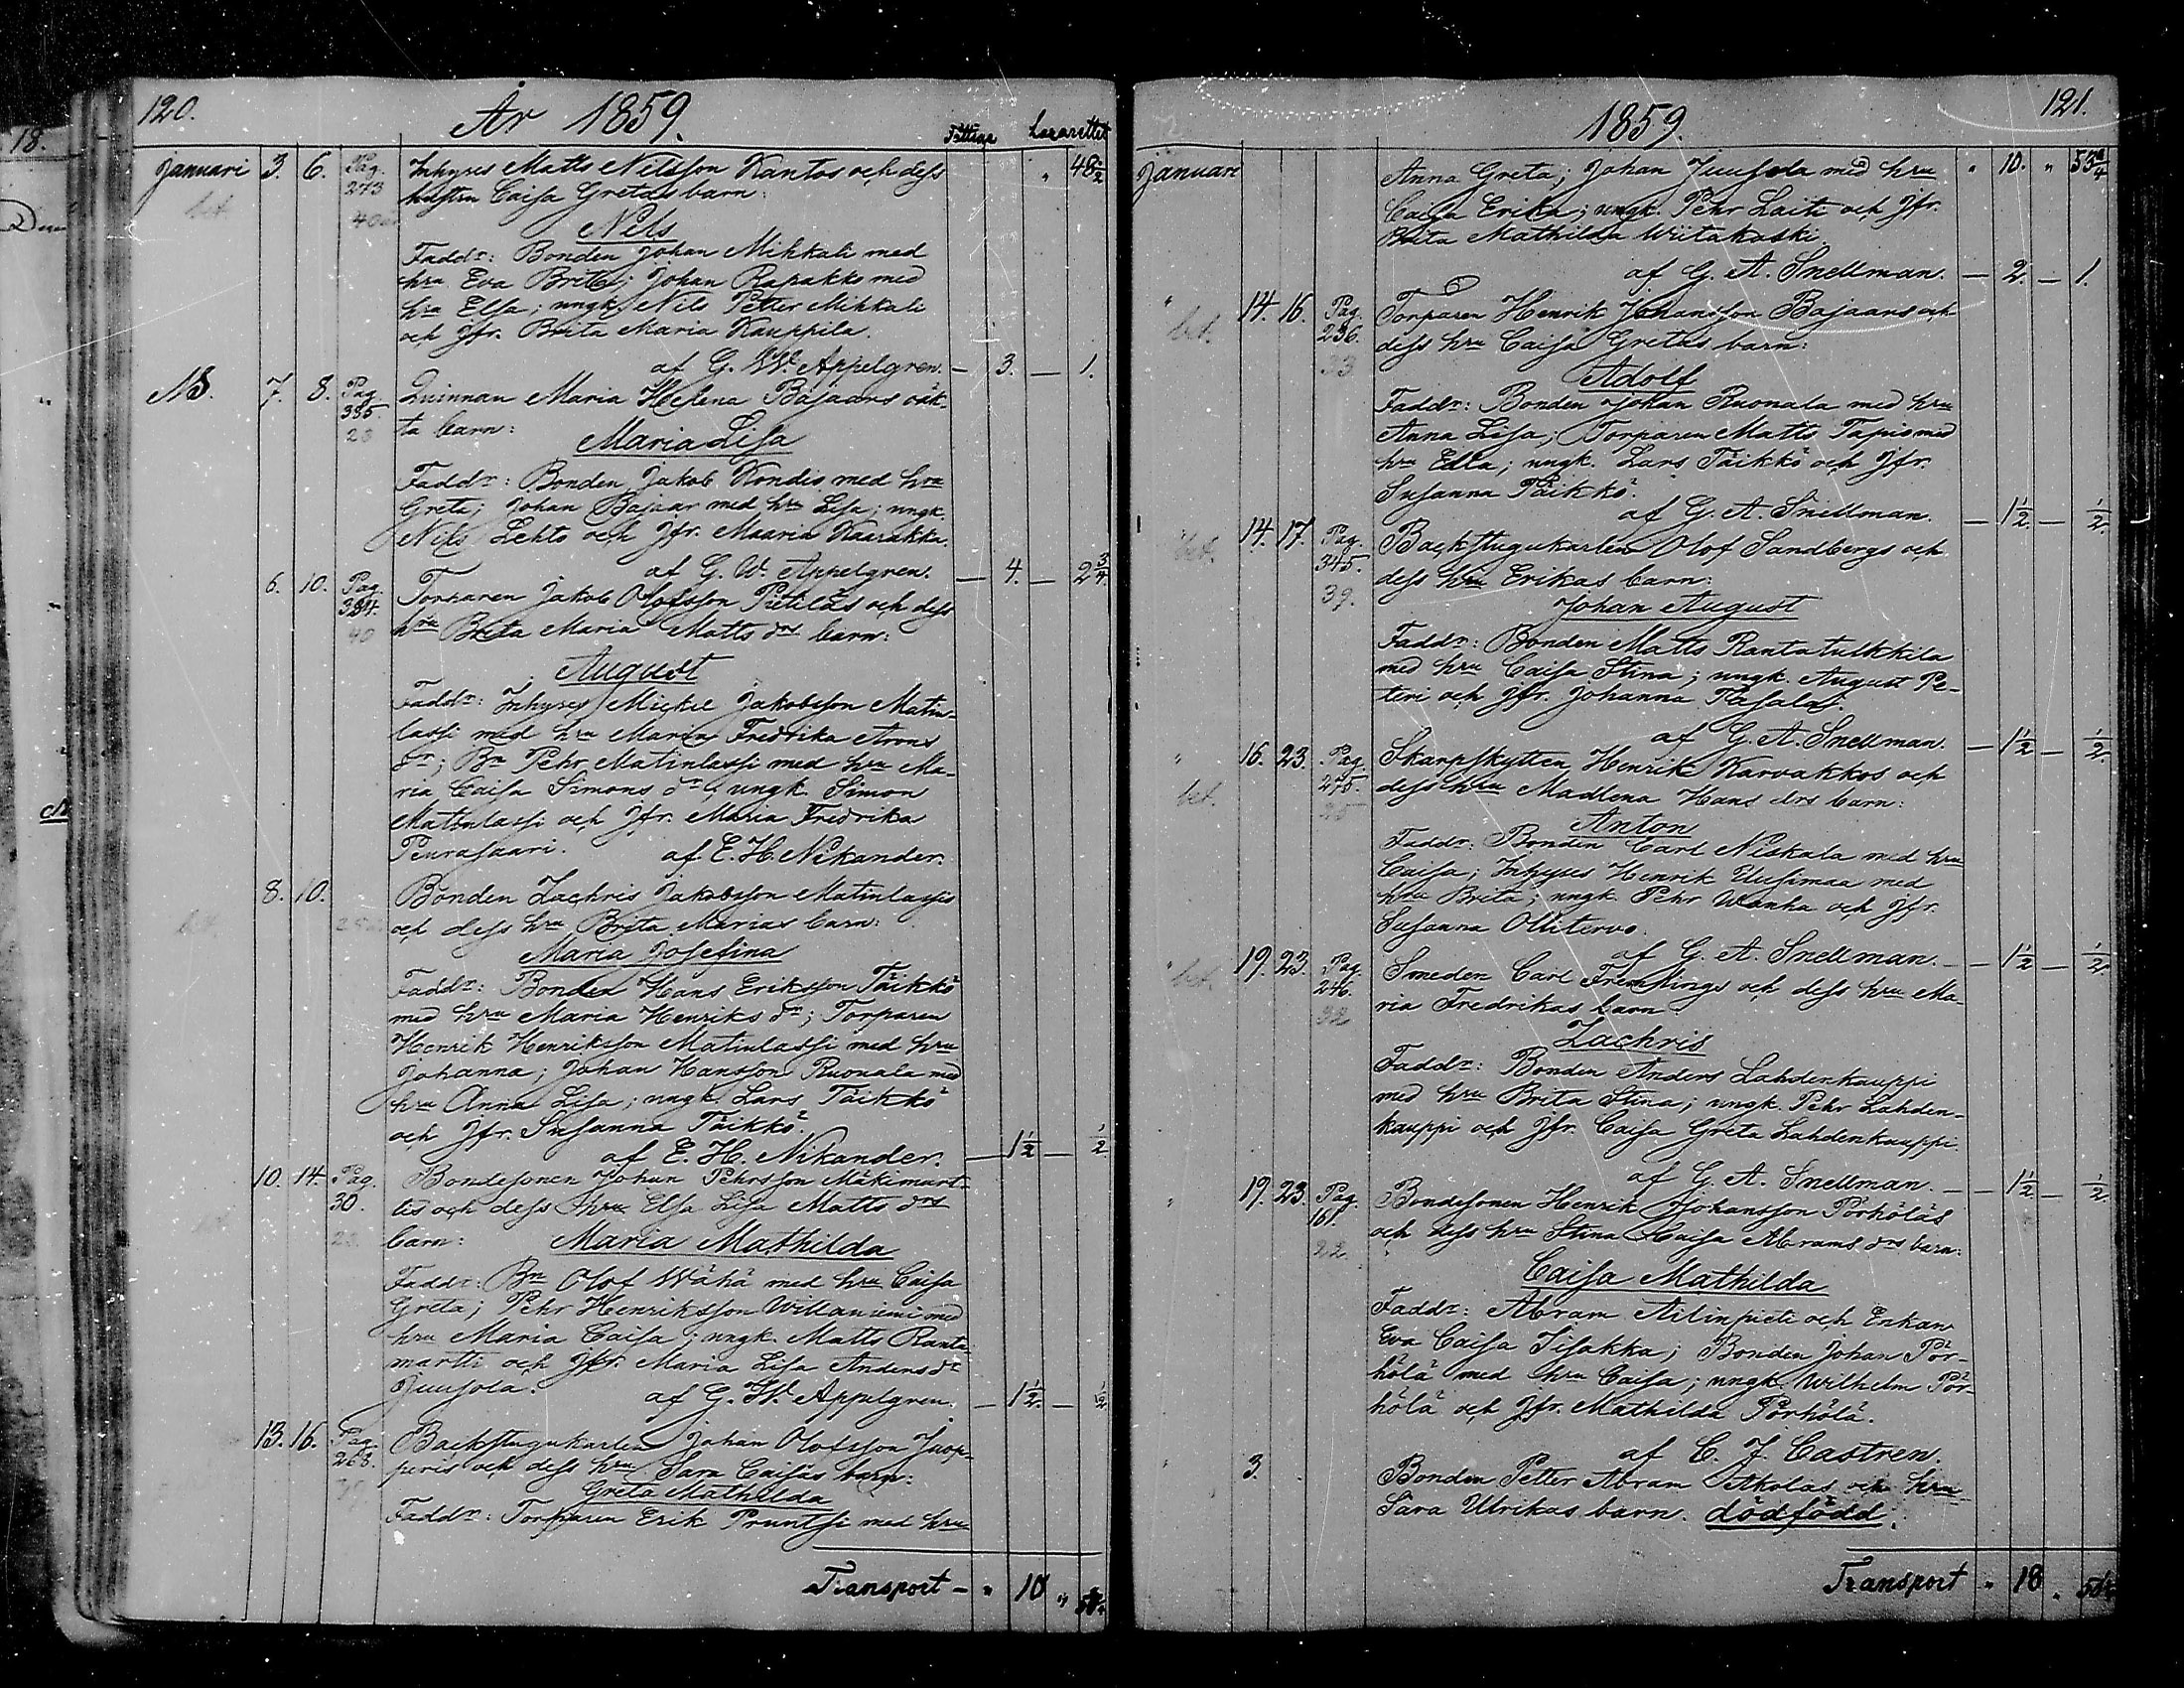 120.
År 1859.
Fattiga Lazarettet
Januari 3. 6. Pag. 273 Inhyses Matts Nilsson Kantos och dess " 48 1/2
bet. 40 hustru Caisa Gretas barn:
Nils
Faddr: Bonden Johan Mikkali med
hru Eva Brita; Johan Rapakko med
hru Elsa; ungk. Nils Petter Mikkali
och Jfr. Brita Maria Kauppila.
af G. W. Appelgren. — 3. — 1.
NB. 7. 8. Pag. 335. Quinnan Maria Helena Bajaars oäk-
ta barn:
Maria Lisa
Faddr: Bonden Jakob Kondis med hru
Greta; Johan Bajaar med hru Lisa; ungk.
Nils Lehto och Jfr. Maaria Kaarakka.
af G. W. Appelgren. — 4. — 2 3/4.
6. 10. Pag. 384. Torparen Jakob Olofsson Pietiläs och dess
40 hru Brita Maria Matts drs barn:
August
Faddr: Inhyses Mickel Jakobsson Matin-
lassi med hru Maria Fredrika Arons
dr; Bn Pehr Matinlassi med hru Ma-
ria Caisa Simons dr; ungk. Simon
Matinlassi och Jfr. Maria Fredrika
Peurasaari. af E. H. Nikander.
8. 10. Bonden Zachris Jakobsson Matinlassis
bet. och dess hru Brita Marias barn:
Maria Josefina
Faddr: Bonden Hans Eriksson Täikkö
med hru Maria Henriks dr; Torparen
Henrik Henriksson Matinlassi med hru
Johanna; Johan Hansson Ruonala med
hru Anna Lisa; ungk. Lars Täikkö
och Jfr. Susanna Täikkö.
af E. H. Nikander. — 1 1/2 — 1/2
10. 14. Pag. 30. Bondesonen Johan Pehrsson Mäkimart-
tis och dess hru Elsa Lisa Matts drs
barn: Maria Mathilda
Faddr: Bn Olof Wähä med hru Caisa
Greta; Pehr Henriksson Willaniemi med
hru Maria Caisa; ungk. Matts Ranta-
martti och Jfr. Maria Lisa Anders dr
Juusola. af G. W. Appelgren. — 1 1/2. — 1/2
13. 16. Pag. 268. Backstugukarlen Johan Olofsson Juop-
peris och dess hru Sara Caisas barn:
Greta Mathilda
Faddr: Torparen Erik Pruntsi med hru
Transport — " 10 "
121.
1859.
Januari Anna Greta; Johan Juusola med hru " 10. " 55 3/4
Caisa Erika; ungk. Pehr Laiti och Jfr.
Brita Mathilda Wiitakoski
af G. A. Snellman. — 2. — 1.
" 14. 16. Pag. 236. Torparen Henrik Johansson Bajaars och
bet. 33 dess hru Caisa Gretas barn:
Adolf
Faddr: Bonden Johan Ruonala med hru
Anna Lisa; Torparen Matts Tapio med
hru Edla; ungk. Lars Täikkö och Jfr.
Susanna Täikkö.
af G. A. Snellman. — 1 1/2 — 1/2.
bet. 14. 17. Pag. 345. Backstugukarlen Olof Sandbergs och
39. dess hru Erikas barn:
Johan August
Faddr: Bonden Matts Rantatulkkila
med hru Caisa Stina; ungk. August Pe-
teri och Jfr. Johanna Pasala.
af G. A. Snellman. — 1 1/2 — 1/2.
" 16. 23. Pag. 275. Skarpskytten Henrik Karvakkos och
bet. 35 dess hru Madlena Hans drs barn:
Anton
Faddr: Bonden Carl Niskala med hru
Caisa; Inhyses Henrik Uusimaa med
hru Brita; ungk. Pehr Wanha och Jfr.
Susanna Ollitervo.
af G. A. Snellman. — 1 1/2 — 1/2.
" bet. 19. 23. Pag. 246. Smeden Carl Fremlings och dess hru Ma-
32 ria Fredrikas barn
Zachris
Faddr: Bonden Anders Lahdenkauppi
med hru Brita Stina; ungk. Pehr Lahden-
kauppi och Jfr. Caisa Greta Lahdenkauppi.
af G. A. Snellman. — 1 1/2 — 1/2
" 19. 23. Pag. 161. Bondesonen Henrik Johansson Pörhöläs
22. och dess hru Stina Caisa Abrams drs barn:
Caisa Mathilda
Faddr: Abram Ailinpieti och Enkan
Eva Caisa Sisakka; Bonden Johan Pör-
hölä med hru Caisa; ungk. Wilhelm Pör-
hölä och Jfr. Mathilda Pörhölä.
af C. J. Castren.
" 3. Bonden Petter Abram Akolas och hru
Sara Ulrikas barn. dödfödd.
Transport " 18 "